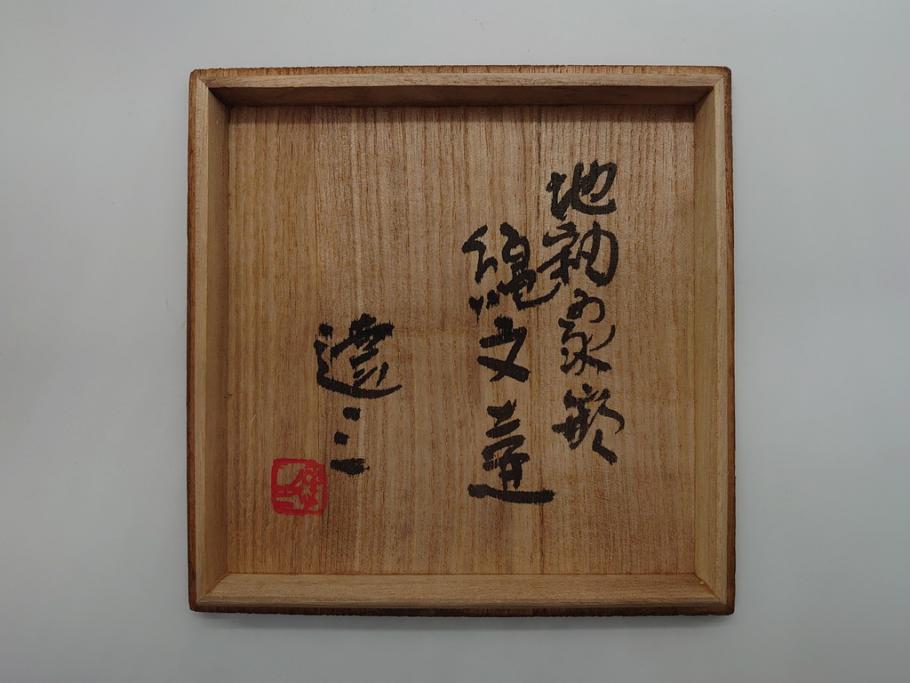 地釉象嵌
縄文壺
達三